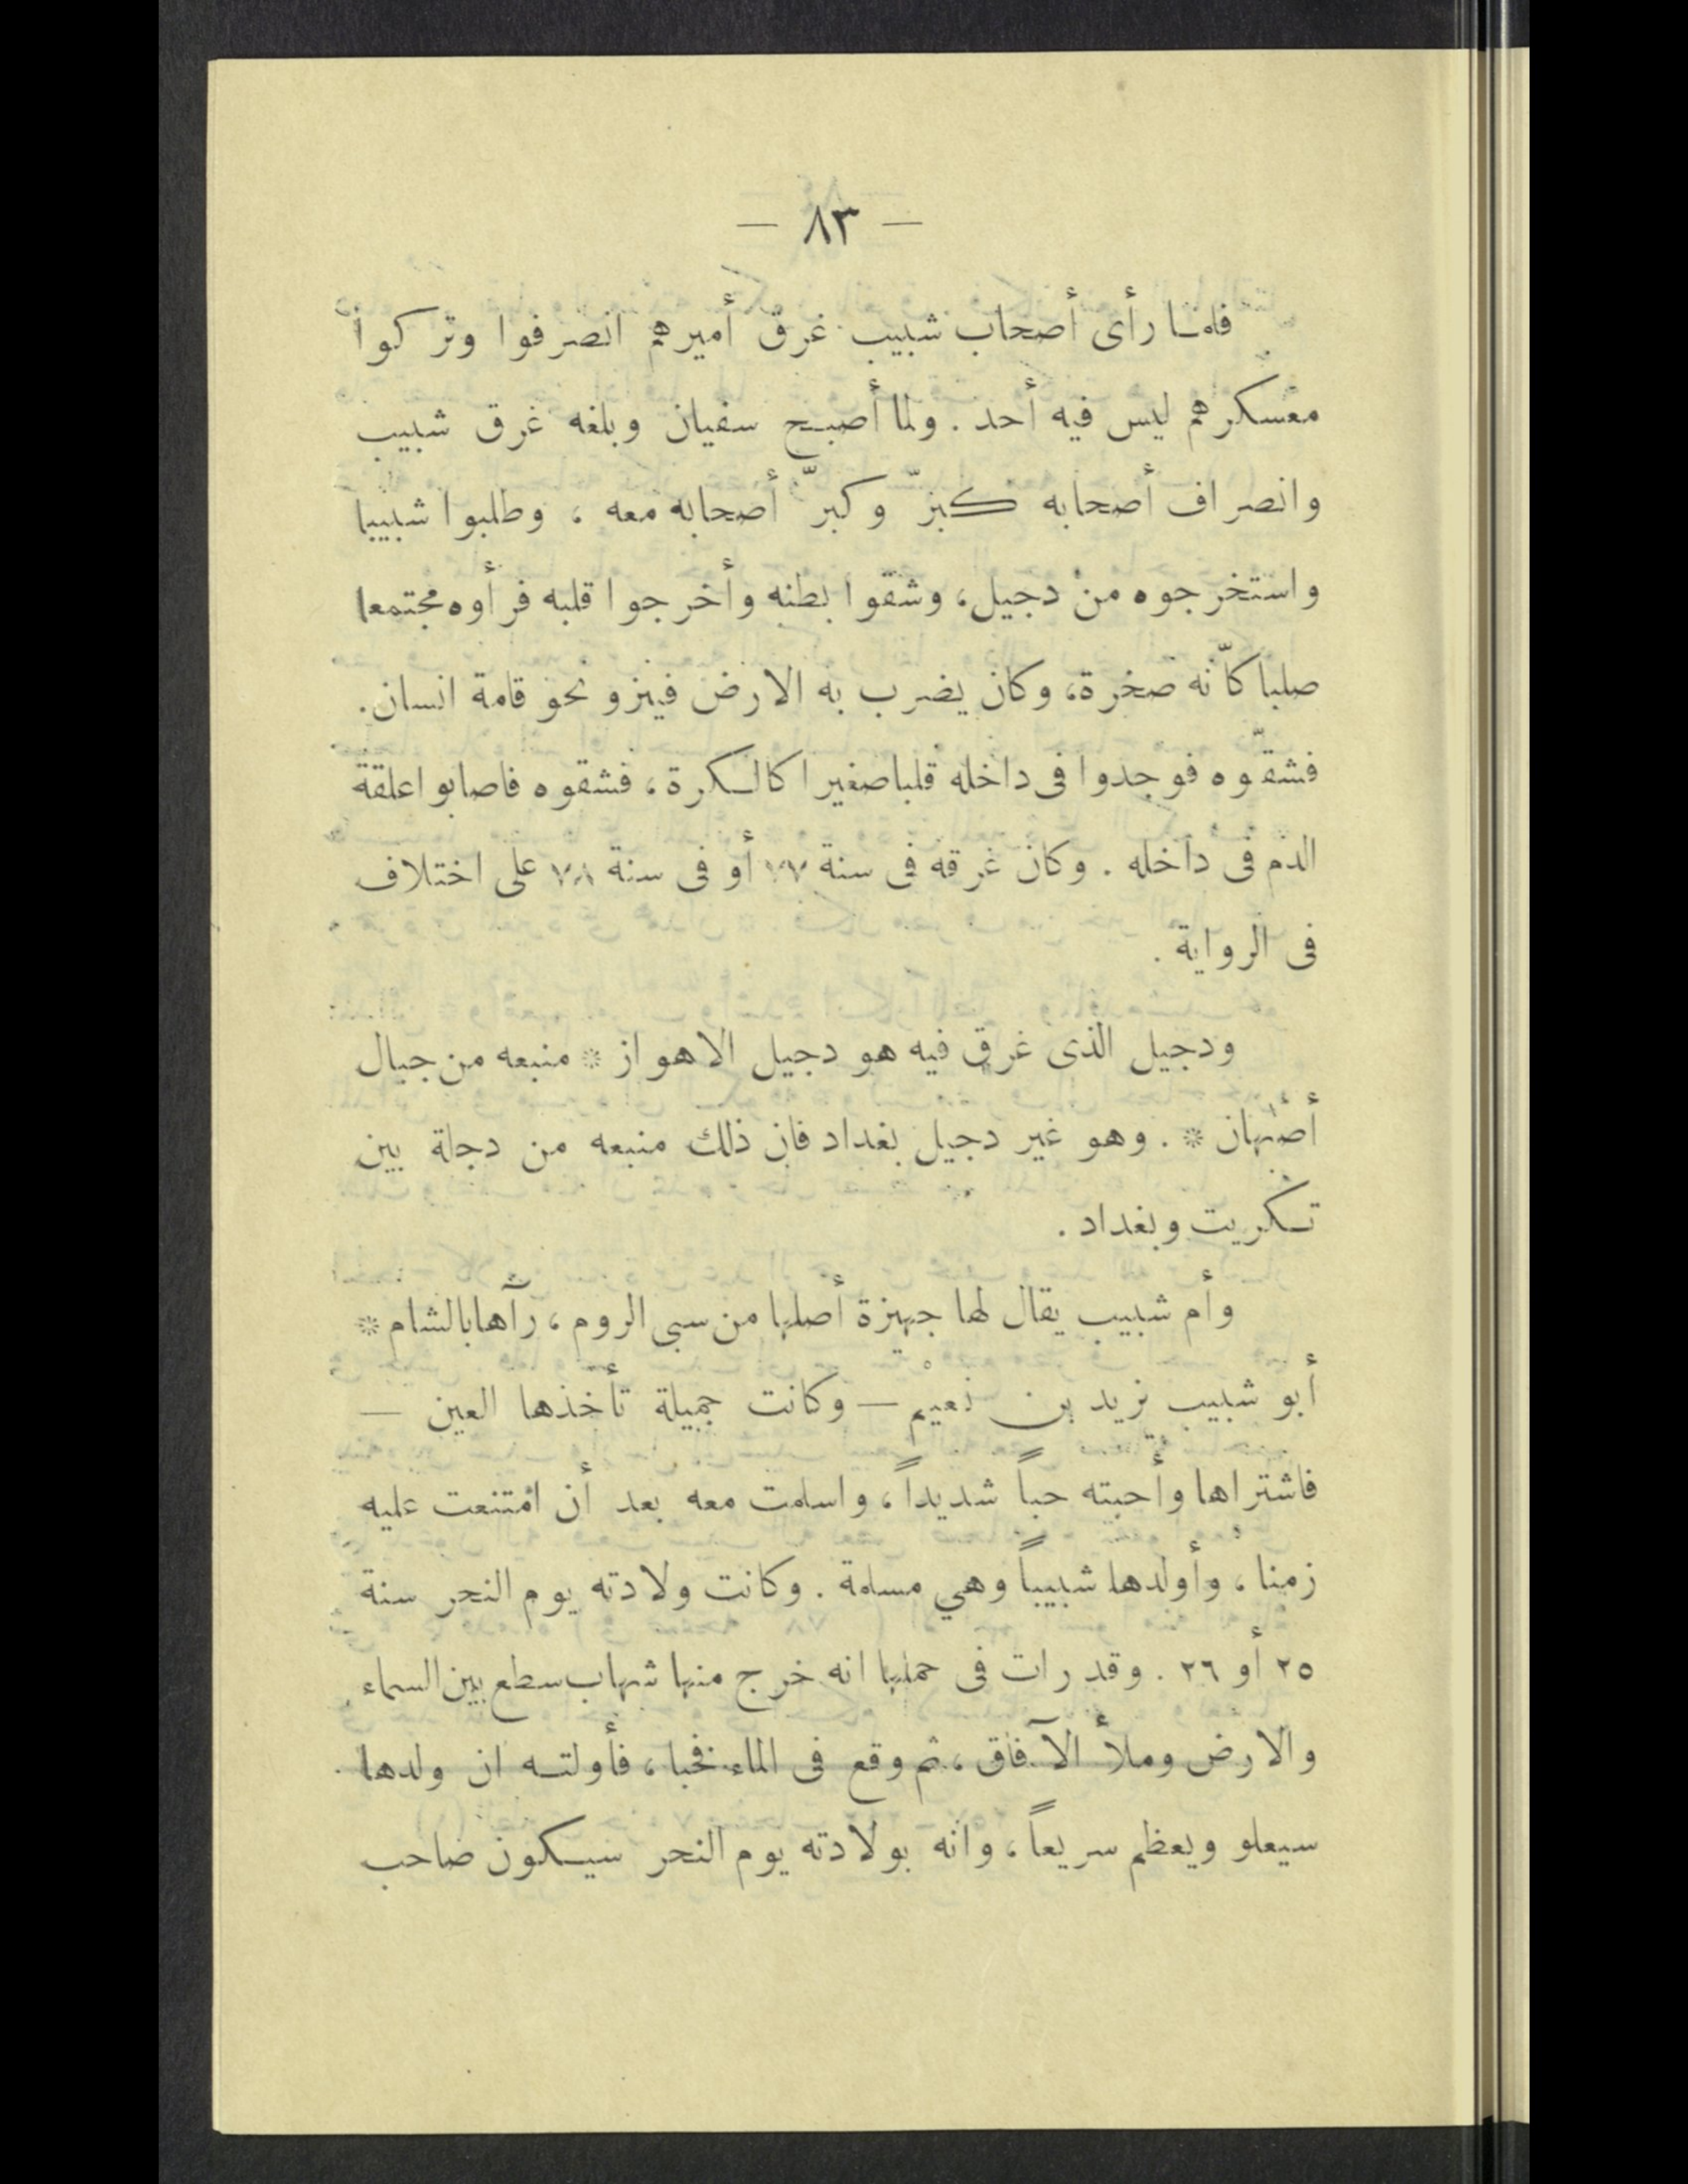 — ٨٣ —
فلمـا رأى أصحاب شبيب غرق أميرهم انصرفوا وتركوا
معسكرهم ليس فيه أحد . ولما أصبح سفيان وبلغه غرق شبيب
وانصراف أصحابه كبرّ وكبرّ أصحابه معه ، وطلبوا شبيبا
واستخرجوه من دجيل، وشقوا بطنه وأخرجوا قلبه فرأوه مجتمعا
صلبا كاّنه صخرة، وكان يضرب به الارض فينزو نحو قامة انسان.
فشقّوه فوجدوا فى داخله قلبا صغيرا كالـكرة ، فشقوه فاصابوا علقة
الدم فى داخله . وكان غرقه فى سنة ٧٧ أو فى سنة ٧٨ على اختلاف
فى الرواية .
ودجيل الذى غرق فيه هو دجيل الاهواز * منبعه من جبال
أصبهان * . وهو غير دجيل بغداد فان ذلك منبعه من دجلة بين
تـكريت وبغداد .
وأم شبيب يقال لها جهيزة أصلها من سبى الروم ، رآها بالشام *
أبو شبيب يزيد بن نعيْم — وكانت جميلة تأخذها العين —
فاشتراها وأحبته حباً شديداً ، واسلمت معه بعد أن امتنعت عليه
زمنا ، وأولدها شبيباً وهي مسلمة . وكانت ولادته يوم النحر سنة
٢٥ أو ٢٦ . وقد رات فى حملها انه خرج منها شهاب سطع بين السماء
والارض وملأ الآفاق ، ثم وقع فى الماء فخبا ، فأولتـه ان ولدها
سيعلو ويعظم سريعاً ، وانه بولادته يوم النحر سيـكون صاحب